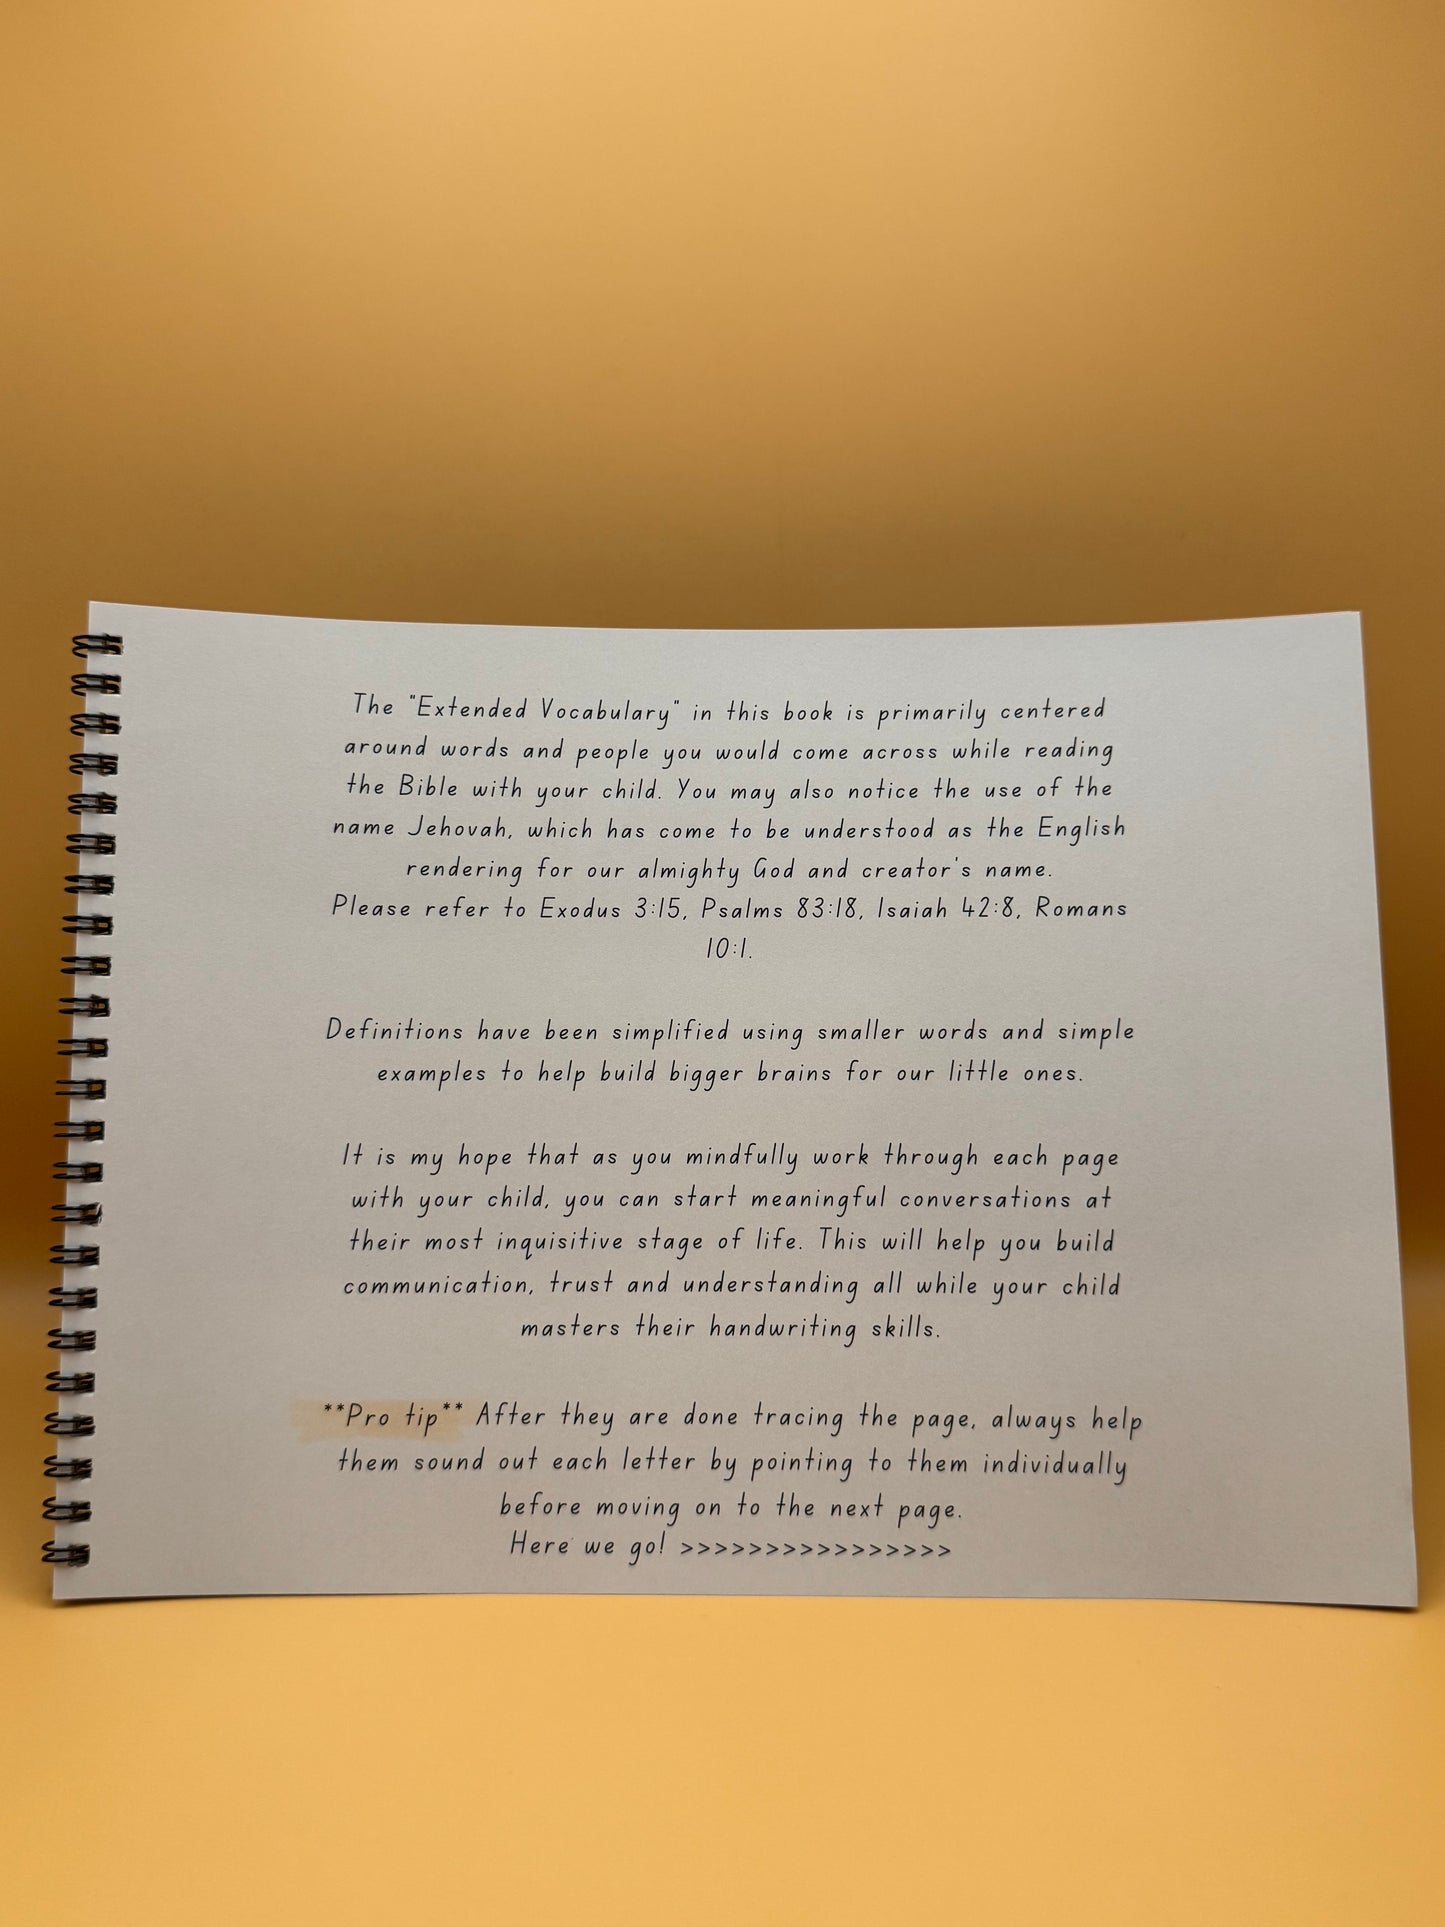 The "Extended Vocabulary" in this book is primarily centered
around words and people you would come across while reading
the Bible with your child. You may also notice the use of the
name Jehovah, which has come to be understood as the English
rendering for our almighty God and creator's name.
Please refer to Exodus 3:15, Psalms 83:18, Isaiah 42:8, Romans
10:1.
Definitions have been simplified using smaller words and simple
examples to help build bigger brains for our little ones.
It is my hope that as you mindfully work through each page
with your child, you can start meaningful conversations at
their most inquisitive stage of life. This will help you build
communication, trust and understanding all while your child
masters their handwriting skills.
**Pro tip** After they are done tracing the page, always help
them sound out each letter by pointing to them individually
before moving on to the next page.
Here we go! >>>>>>>>>>>>>>>>